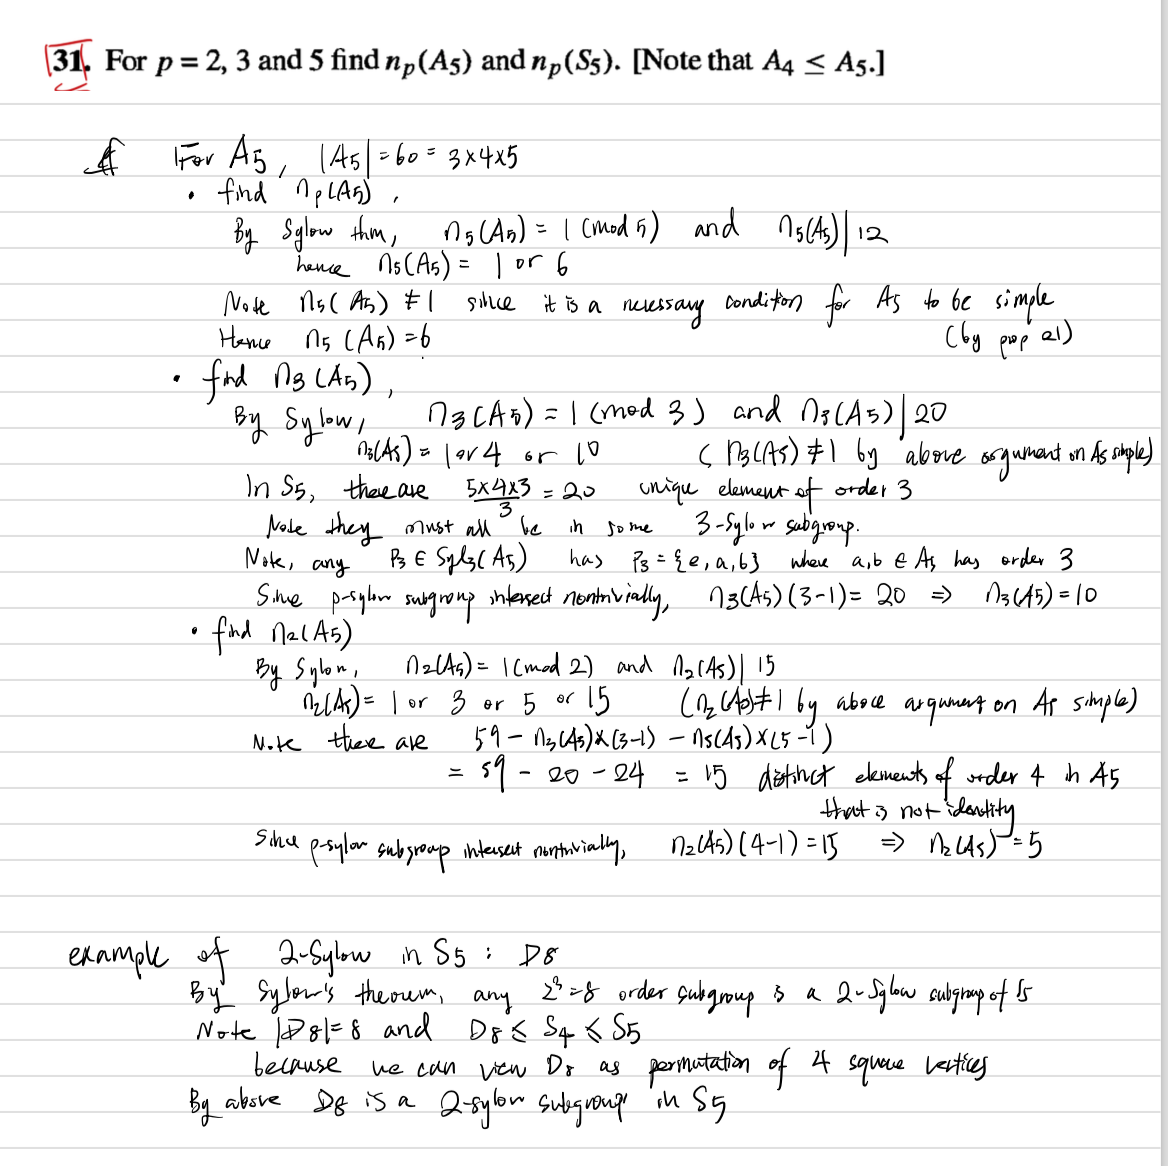 31. For p = 2, 3 and 5 find n_p(A_5) and n_p(S_5). [Note that A_4 ≤ A_5.]
For A5, |A5| = 60 = 3×4×5
• find n_p(A5),
By Sylow thm, n5(A5) = 1 (mod 5) and n5(A5) | 12
hence n5(A5) = 1 or 6
Note n5(A5) ≠ 1 since it is a necessary condition for A5 to be simple
Hence n5(A5) = 6 (by prop 21)
• find n3(A5),
By Sylow, n3(A5) = 1 (mod 3) and n3(A5) | 20
n3(A5) = 1 or 4 or 10 (n3(A5) ≠ 1 by above argument on A5 simple)
In S5, there are 5×4×3/3 = 20 unique element of order 3
Note they must all be in some 3-Sylow subgroup.
Note, any P3 ∈ Syl3(A5) has P3 = {e, a, b} where a, b ∈ A5 has order 3
Since p-sylow subgroup intersect nontrivially, n3(A5)(3-1) = 20 ⇒ n3(A5) = 10
• find n2(A5)
By Sylow, n2(A5) = 1 (mod 2) and n2(A5) | 15
n2(A5) = 1 or 3 or 5 or 15 (n2(A5) ≠ 1 by above argument on A5 simple)
Note there are 59 - n3(A5)×(3-1) - n5(A5)×(5-1)
= 59 - 20 - 24 = 15 distinct elements of order 4 in A5
that is not identity
Since p-sylow subgroup intersect nontrivially, n2(A5)(4-1) = 15 ⇒ n2(A5) = 5
example of 2-Sylow in S5 : D8
By Sylow's theorem, any 2^3 = 8 order subgroup is a 2-Sylow subgroup of S5
Note |D8| = 8 and D8 ≤ S4 ≤ S5
because we can view D8 as permutation of 4 square vertices
By above D8 is a 2-sylow subgroup in S5